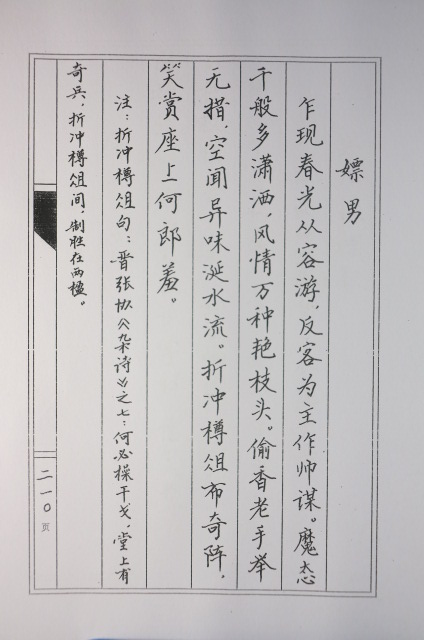 嫖男
乍现春光从容游，反客为主作帅谋。魔态
千般多潇洒，风情万种艳枝头。偷香老手举
无措，空闻异味涎水流。折冲樽俎布奇阵，
笑赏座上何郎羞。
注：折冲樽俎句：晋张协《杂诗》之七：何必操干戈，堂上有
奇兵，折冲樽俎间，制胜在两楹。
二一〇页